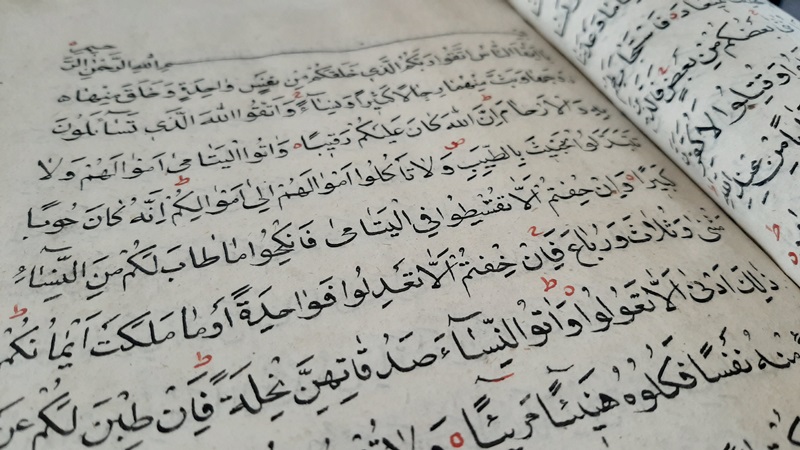 بسم الله الرحمن الرحيم
الناس اتقوا ربكم الذي خلقكم من نفس واحدة وخلق منها
زوجها وبث منهما رجالا كثيرا ونساء واتقوا الله الذي تساءلون
والارحام ان الله كان عليكم رقيبا واتوا اليتامى اموالهم ولا
تتبدلوا الخبيث بالطيب ولا تاكلوا اموالهم الى اموالكم انه كان حوبا
كبيرا وان خفتم الا تقسطوا في اليتامى فانكحوا ما طاب لكم من النساء
مثنى وثلاث ورباع فان خفتم الا تعدلوا فواحدة او ما ملكت ايمانكم
ذلك ادنى الا تعولوا واتوا النساء صدقاتهن نحلة فان طبن لكم عن
منه نفسا فكلوه هنيئا مريئا ولا
بعضكم من بعض فالذ
وقتلوا لاكفر
من عند الله